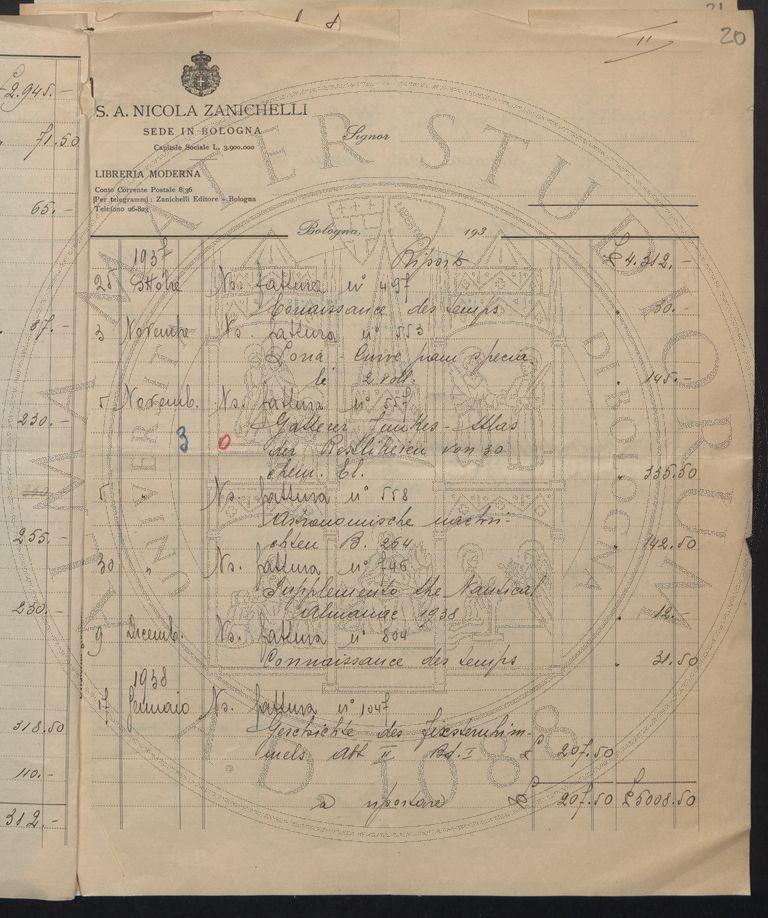 21
20
II
£ 2.945.-
71.50
65.-
37.-
230.-
255.-
230.-
318.50
110.-
312.-
S. A. NICOLA ZANICHELLI
SEDE IN BOLOGNA
Capitale Sociale L. 3.900.000
LIBRERIA MODERNA
Conto Corrente Postale 8/36
(Per telegrammi: Zanichelli Editore - Bologna
Telefono 26-823
Signor
Bologna, 193
1937 Riporto £ 4.312.-
25 Ottobre Ns. fattura n° 497
Connaissance des temps " 50.-
3 Novembre Ns. fattura n° 553
Loria - Curve piane specia
li 2 voll. " 145.-
5 Novemb. Ns. fattura n° 557
Gatterer Funkes - Atlas
der Restlinien von 30
chem. El. " 335.50
3 0
5 " Ns. fattura n° 558
Astronomische nachri-
chten B. 264 " 142.50
30 " Ns. fattura n° 746
Supplemento the Nautical
Almanac 1938 " 12.-
9 Dicemb. Ns. fattura n° 804
Connaissance des temps " 31.50
1938
17 Gennaio Ns. fattura n° 1047
Geschichte des fixsternhim-
mels Abt II Bd. I £ 207.50
a riportare £ 207.50 £ 5008.50
ALMA MATER STUDIORUM
UNIVERSITÀ DI BOLOGNA
A.D. 1088